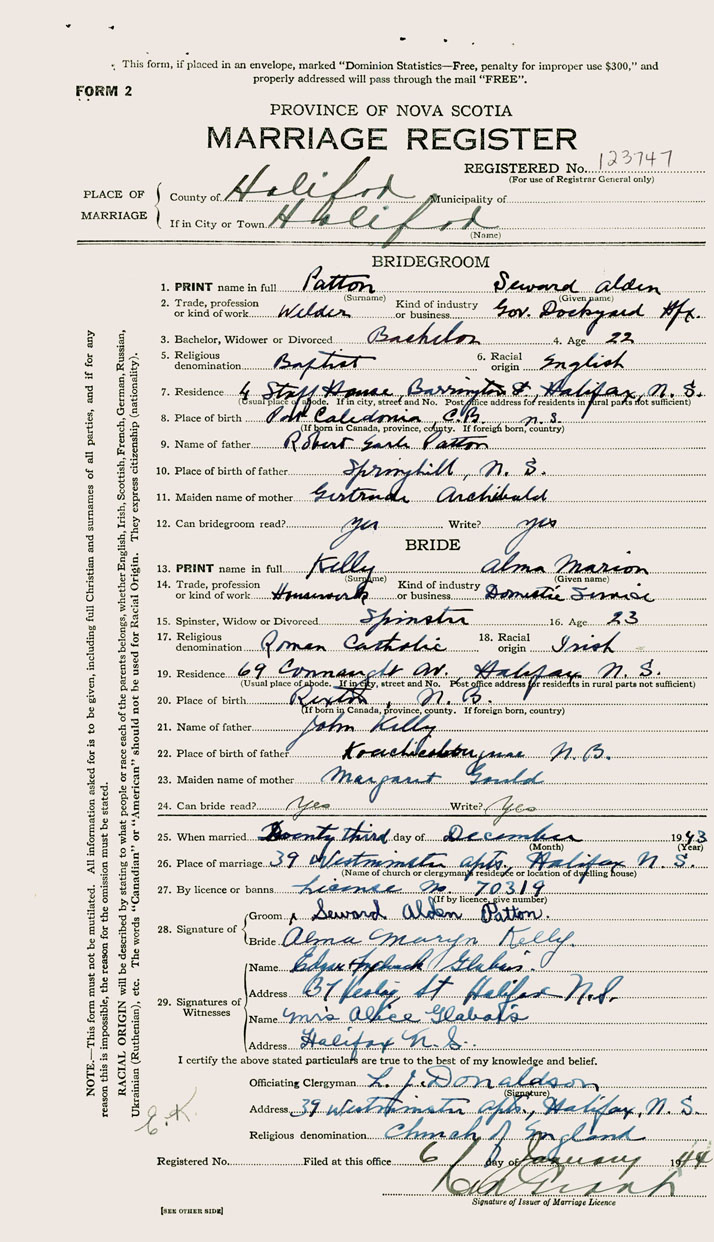 This form, if placed in an envelope, marked "Dominion Statistics—Free, penalty for improper use $300," and
properly addressed will pass through the mail "FREE".
FORM 2
PROVINCE OF NOVA SCOTIA
MARRIAGE REGISTER
REGISTERED No. 123747
(For use of Registrar General only)
PLACE OF MARRIAGE
County of Halifax Municipality of
If in City or Town Halifax
(Name)
BRIDEGROOM
1. PRINT name in full Patton Seward Alden
(Surname) (Given name)
2. Trade, profession or kind of work Welder Kind of industry or business Gov. Dockyard Hfx.
3. Bachelor, Widower or Divorced Bachelor 4. Age 22
5. Religious denomination Baptist 6. Racial origin English
7. Residence 4 Staff House, Barrington St. Halifax, N. S.
(Usual place of abode. If in city, street and No. Post office address for residents in rural parts not sufficient)
8. Place of birth Port Caledonia, C.B. N.S.
(If born in Canada, province, county. If foreign born, country)
9. Name of father Robert Earle Patton
10. Place of birth of father Springhill, N. S.
11. Maiden name of mother Gertrude Archibald
12. Can bridegroom read? yes Write? yes
BRIDE
13. PRINT name in full Kelly Alma Marion
(Surname) (Given name)
14. Trade, profession or kind of work Housework Kind of industry or business Domestic Service
15. Spinster, Widow or Divorced Spinster 16. Age 23
17. Religious denomination Roman Catholic 18. Racial origin Irish
19. Residence 69 Connaught Av. Halifax N. S.
(Usual place of abode. If in city, street and No. Post office address for residents in rural parts not sufficient)
20. Place of birth Rexton, N. B.
(If born in Canada, province, county. If foreign born, country)
21. Name of father John Kelly
22. Place of birth of father N.B.
23. Maiden name of mother Margaret Gould
24. Can bride read? Yes Write? Yes
25. When married Twenty third day of December 1943
(Month) (Year)
26. Place of marriage 39 Westminster Apts. Halifax N. S.
(Name of church or clergyman's residence or location of dwelling house)
27. By licence or banns License No. 70319
(If by licence, give number)
28. Signature of
Groom Seward Alden Patton.
Bride Alma Maryn Kelly.
29. Signatures of Witnesses
Name Edgar Glabais.
Address 37 St Halifax N.S.
Name Mrs Alice Glabais
Address Halifax N. S.
I certify the above stated particulars are true to the best of my knowledge and belief.
Officiating Clergyman L. J. Donaldson
(Signature)
Address 39 Westminster Apts., Halifax, N. S.
Religious denomination Church of England
Registered No. Filed at this office 6 day of January 1944
Signature of Issuer of Marriage Licence
[SEE OTHER SIDE]
NOTE.—This form must not be mutilated. All information asked for is to be given, including full Christian and surnames of all parties, and if for any
reason this is impossible, the reason for the omission must be stated.
RACIAL ORIGIN will be described by stating to what people or race each of the parents belongs, whether English, Irish, Scottish, French, German, Russian,
Ukrainian (Ruthenian), etc. The words "Canadian" or "American" should not be used for Racial Origin. They express citizenship (nationality).
E. K.